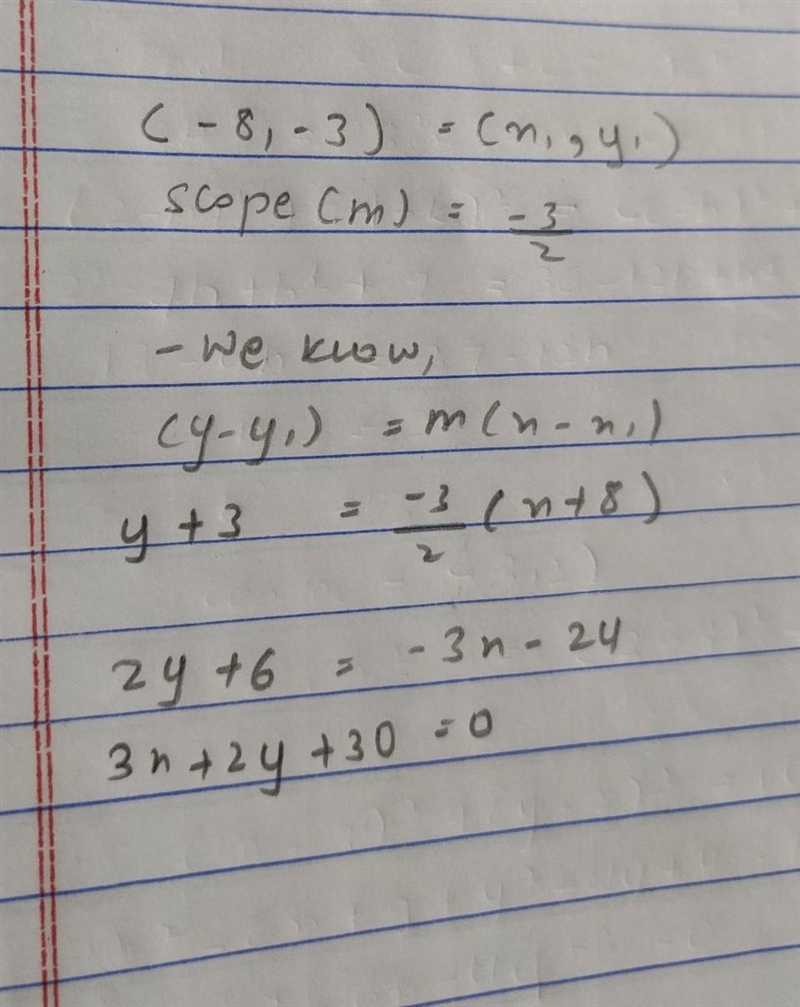 (-8, -3) = (x₁, y₁)
scope (m) = -3/2
- We know,
(y-y₁) = m(x - x₁)
y + 3 = -3/2 (x+8)
2y + 6 = -3x - 24
3x + 2y + 30 = 0